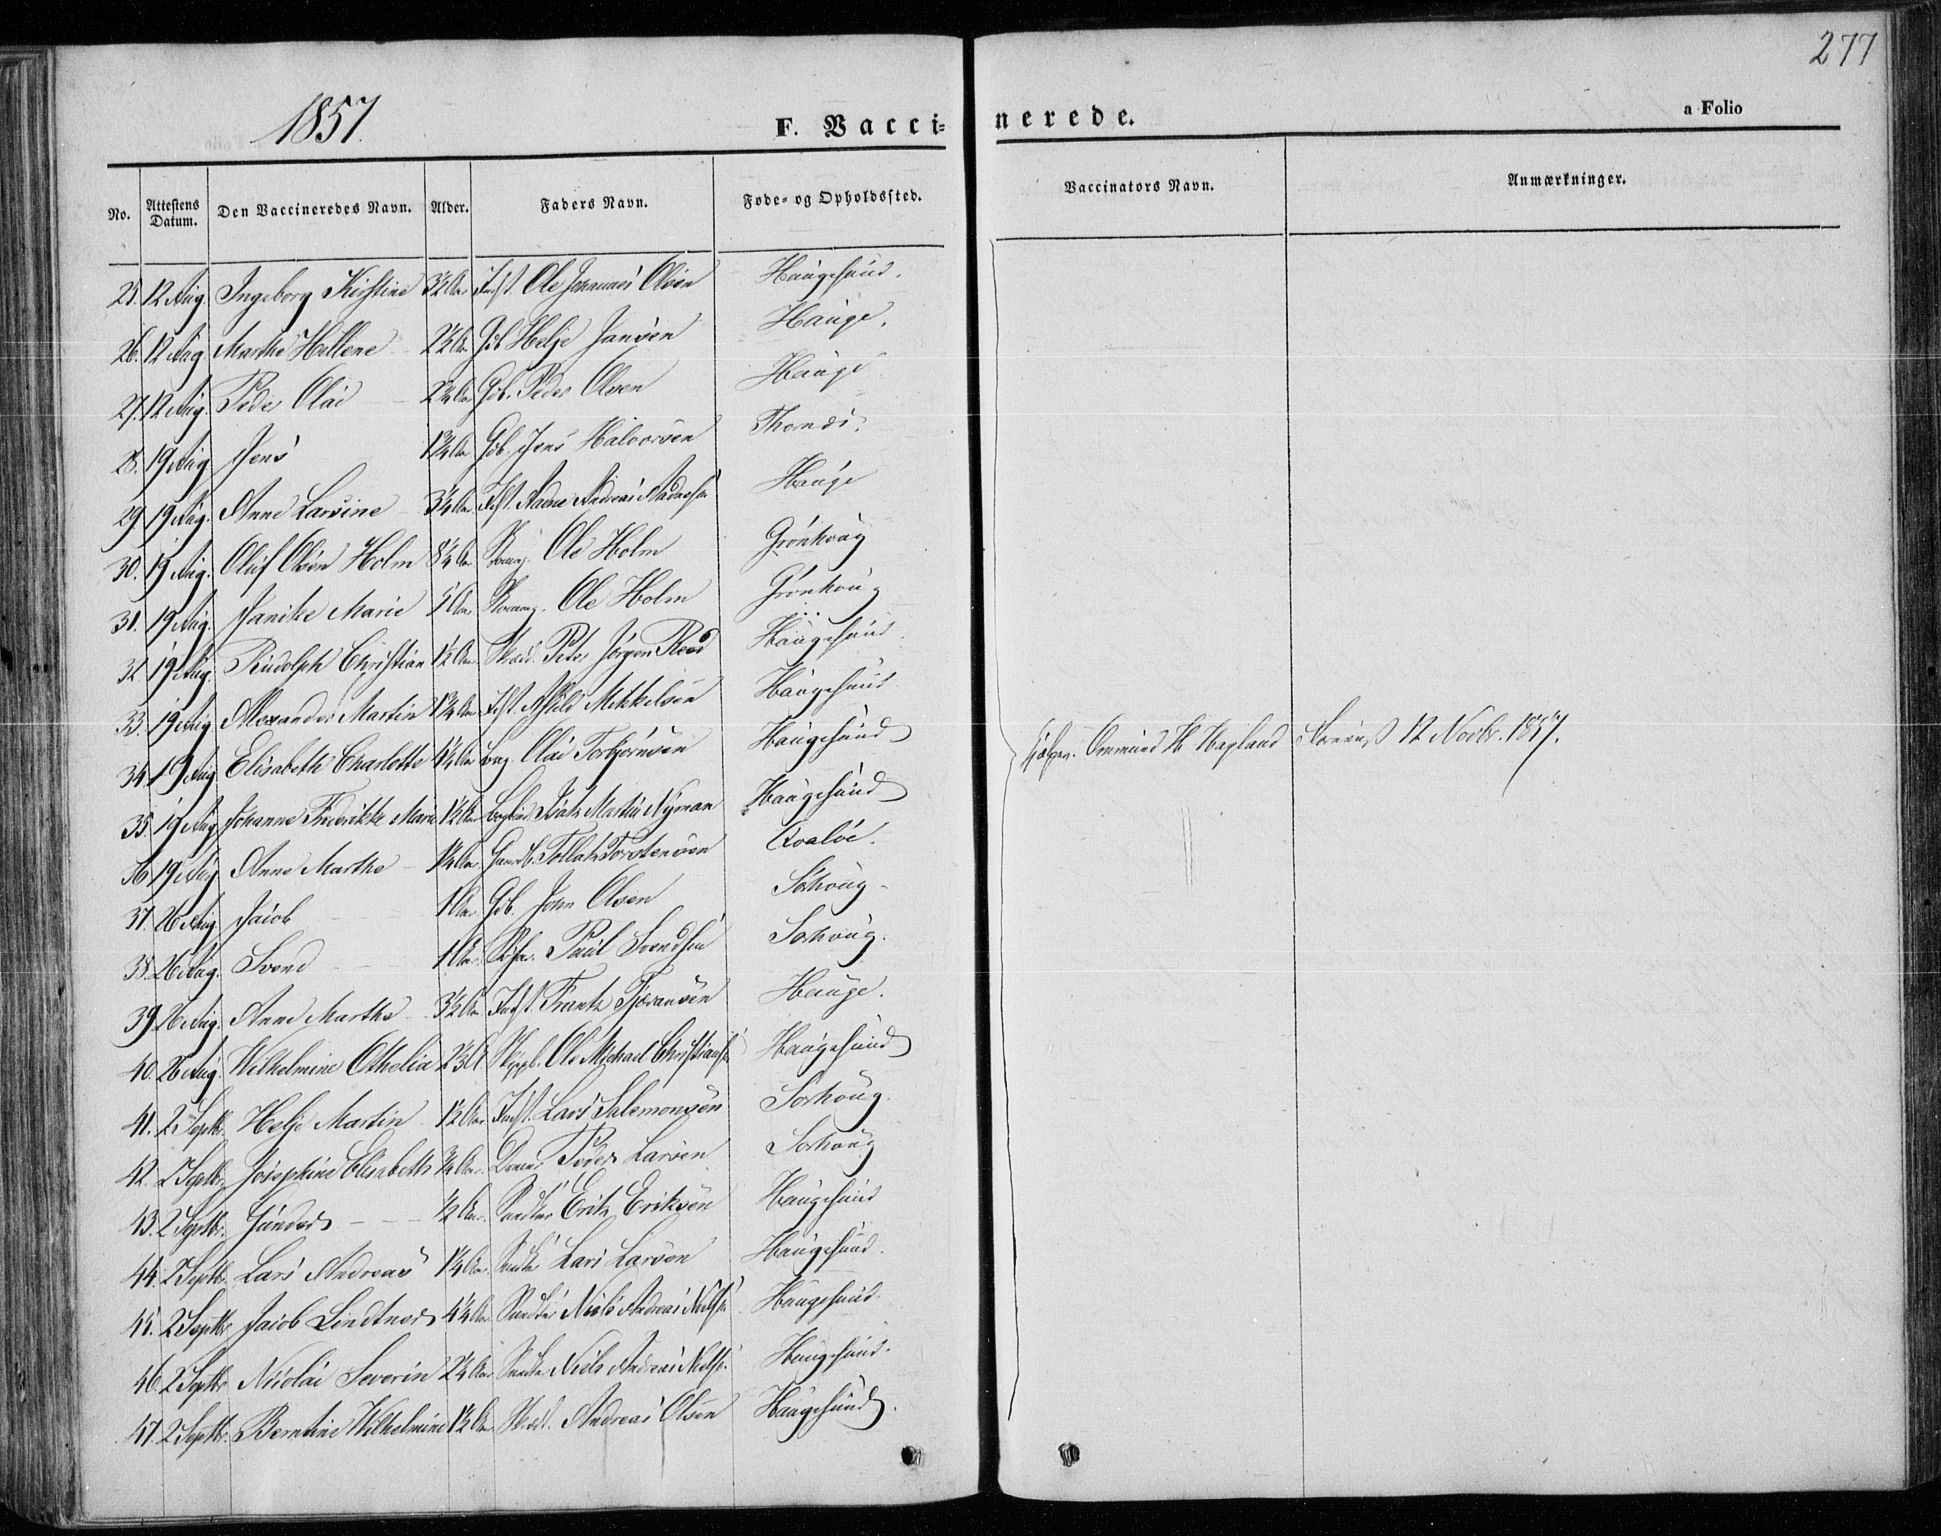 277
1857.
F. Vaccinerede.
a Folio
No. Attestens Datum. Den Vaccineredes Navn. Alder. Faders Navn. Føde- og Opholdssted. Vaccinators Navn. Anmærkninger.
25. 12 Aug Ingeborg Kirstine 3½ Aar Indst. Ole Johannes Olsen Haugesund.
26. 12 Aug Marthe Hellene 2½ Aar Gdb Helje Jansen Hauge.
27. 12 Aug. Peder Olai 2¼ Aar Gdb. Peder Olsen Hauge
28. 19 Aug Jens 1¾ Aar Gdb. Jens Halvorsen
29 19 Aug. Anne Larsine 3¼ Aar Andreas Hauge
30. 19 Aug. Oluf Olsen Holm 8¼ Aar Ole Holm Grönhoug
31. 19 Aug. Janike Marie 5 Aar Ole Holm Grönhoug
32 19 Aug. Rudolph Christian 1½ Aar Peter Jörgen Haugesund.
33. 19 Aug Alexander Martin 1¾ Aar Indst. Mikkelsen Haugesund
34. 19 Aug Elisabeth Charlotte 1¼ Aar Olai Torbjörnsen Haugesund
35. 19 Aug Johanne Fredrikke Marie 1½ Aar Martin Nyman Haugesund
36 19 Aug Anne Marthe 1¼ Aar Gaardb. Tollak Torstensen Kvaløe.
37. 26 Aug Jacob 1 Aar Gdb. John Olsen Sörhoug
38. 26 Aug. Svend 1 Aar Paul Svendsen Sörhoug.
39 26 Aug. Anne Marthe 3½ Aar Indst. Frantz Hauge.
40. 26 Aug. Wilhelmine Othelia Ole Michael Christiansen Haugesund
41. 2 Septb. Helje Martin 1½ Aar Indst. Lars Salemonsen Sörhoug.
42. 2 Septbr. Josephine Elisabeth ¾ Aar Peder Larsen Sörhoug
43. 2 Septbr. Gunder ½ Aar Erik Eriksen Haugesund
44. 2 Septbr. Lars Andreas 1¼ Aar Lars Larsen Haugesund.
45. 2 Septbr Jacob Lindtner 4¼ Aar Niels Andreas Nielsen Haugesund
46. 2 Septbr Nicolai Severin 2¼ Aar Niels Andreas Nielsen Haugesund.
47. 2 Septbr. Berntine Wilhelmine 1½ Aar Andreas Olsen Haugesund.
Ommund H. Hapland 12 Novbr. 1857.